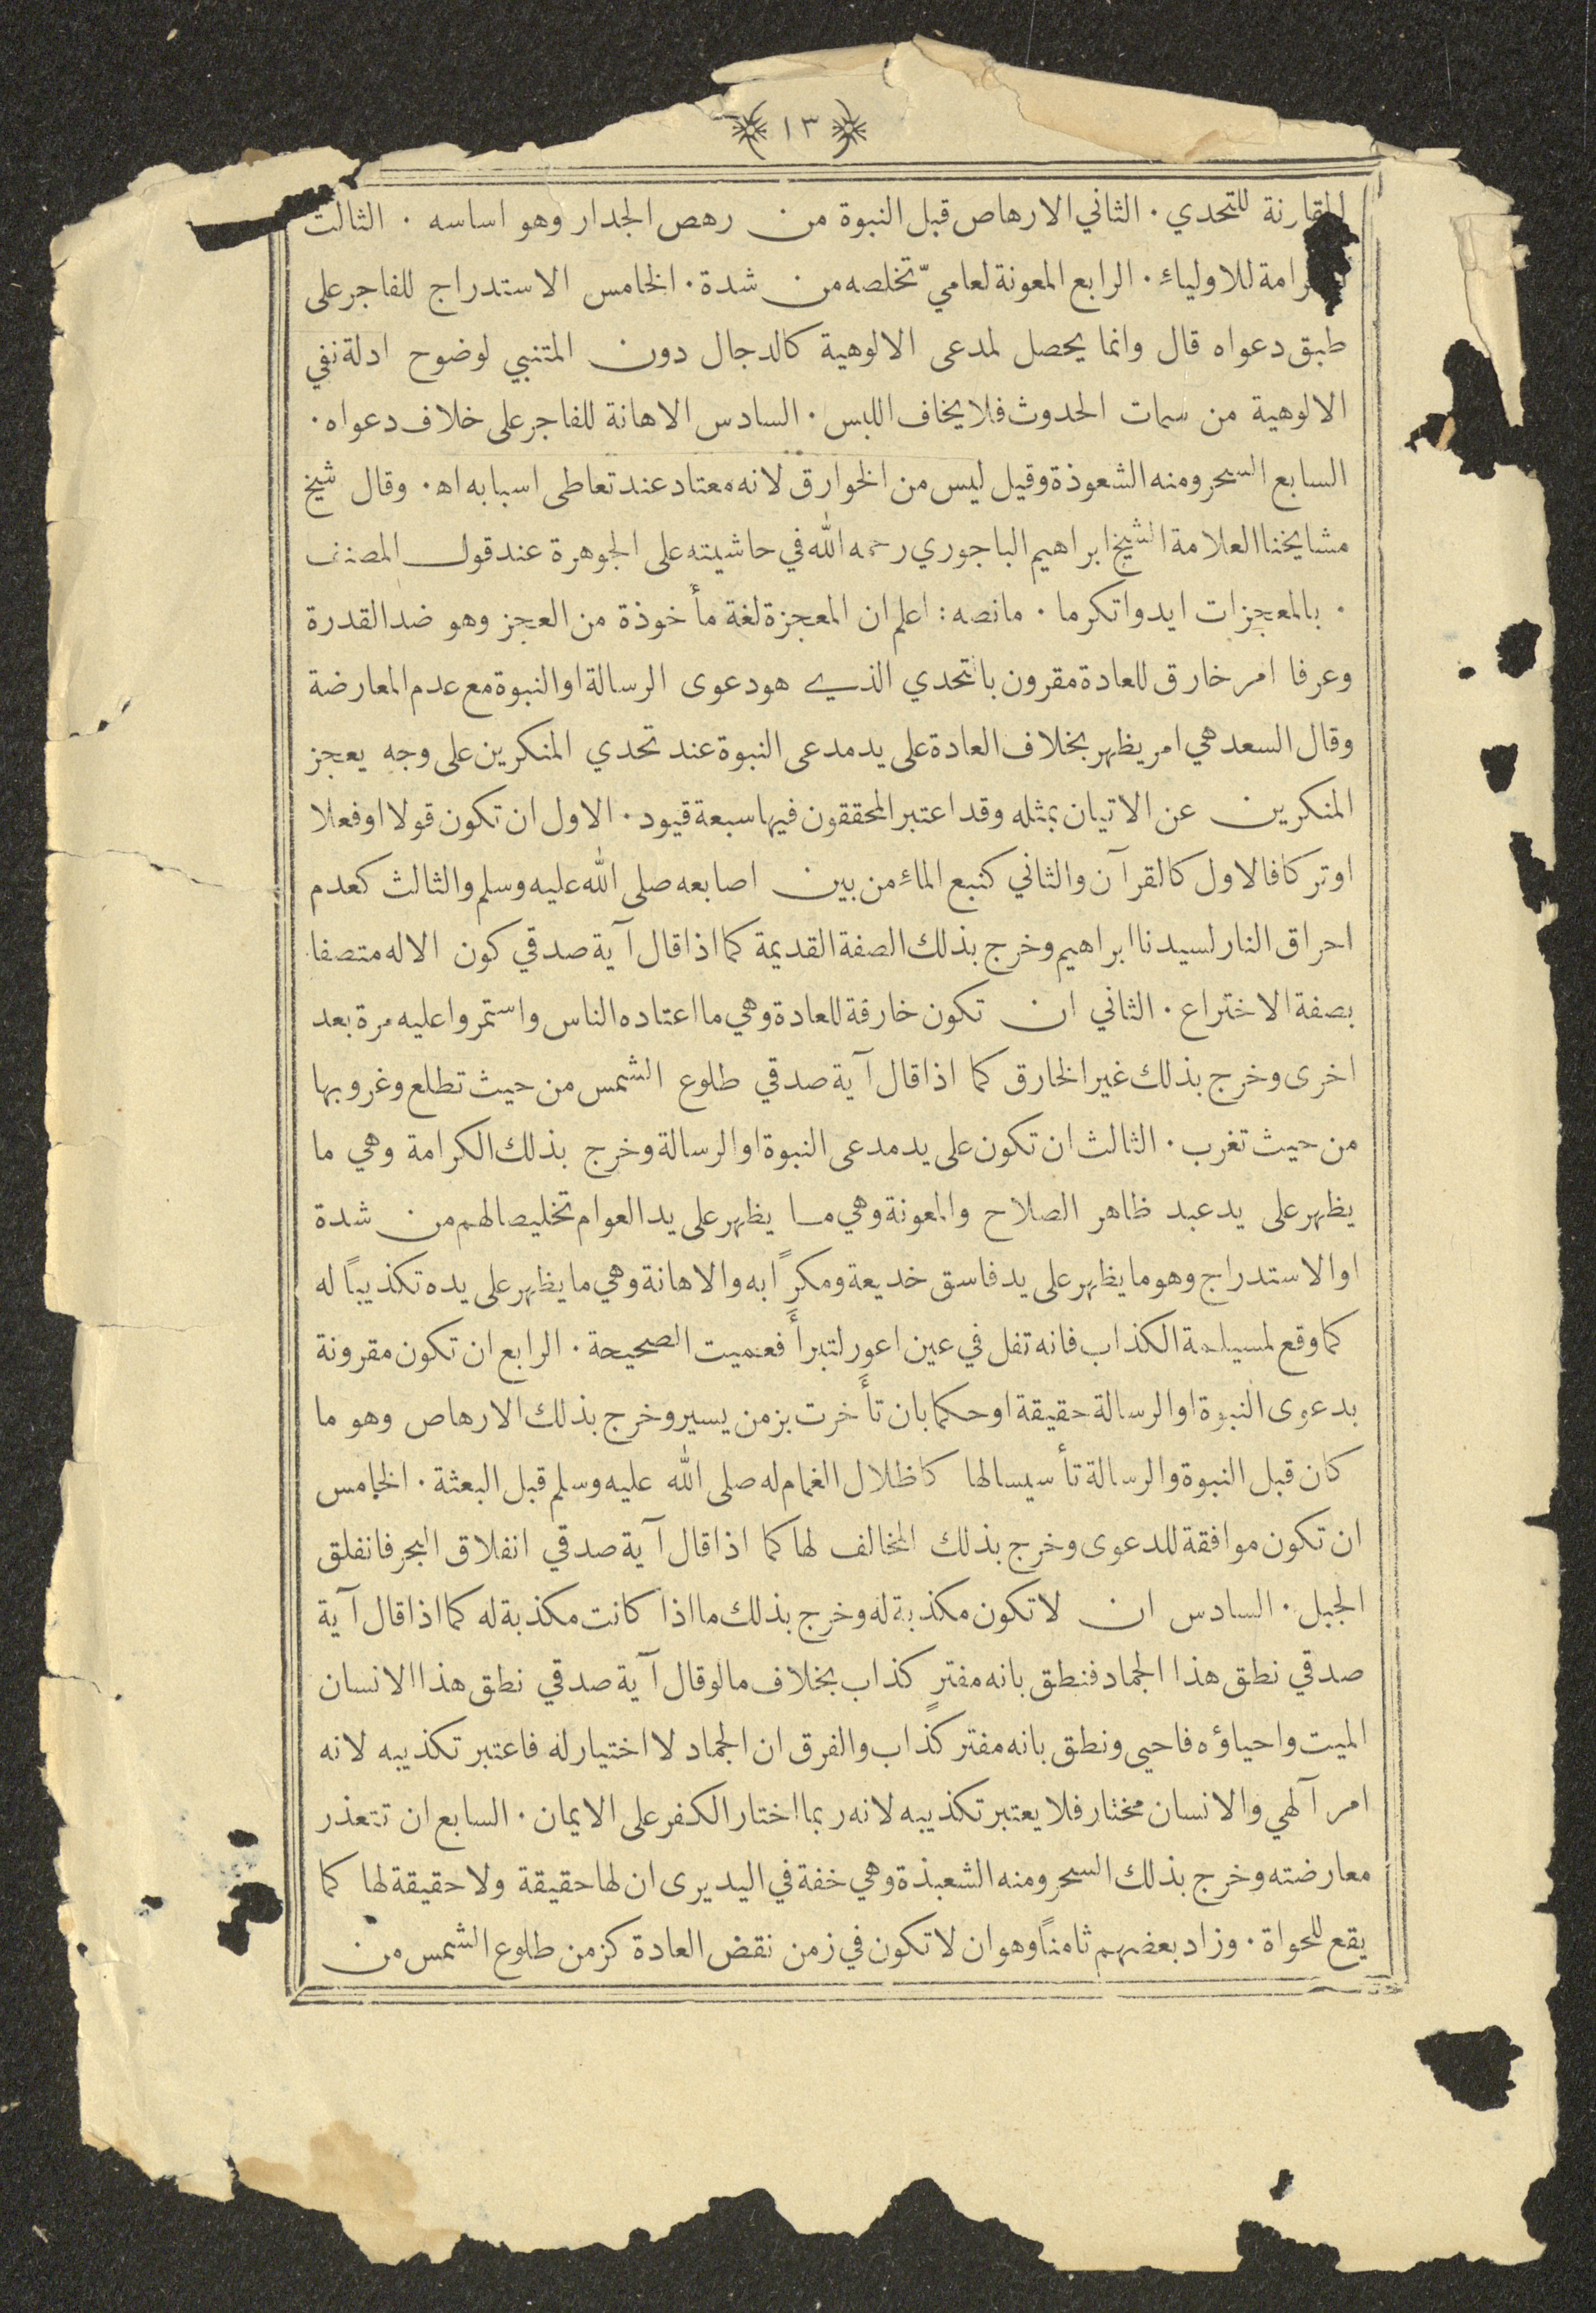 ١٣
المقارنة للتحدي . الثاني الارهاص قبل النبوة من رهص الجدار وهو اساسه . الثالث
للاولياء . الرابع المعونة لعاميّ تخلصه من شدة . الخامس الاستدراج للفاجر على
طبق دعواه قال وانما يحصل لمدعى الالوهية كالدجال دون المتنبي لوضوح ادلة نفي
الالوهية من سمات الحدوث فلا يخاف اللبس . السادس الاهانة للفاجر على خلاف دعواه .
السابع السحر ومنه الشعوذة وقيل ليس من الخوارق لانه معتاد عند تعاطى اسبابه اه . وقال شيخ
مشايخنا العلامة الشيخ ابراهيم الباجوري رحمه الله في حاشيته على الجوهرة عند قول المصنف
. بالمعجزات ايدوا تكرما . ما نصه : اعلم ان المعجزة لغة مأخوذة من العجز وهو ضد القدرة
وعرفا امر خارق للعادة مقرون بالتحدي الذي هو دعوى الرسالة او النبوة مع عدم المعارضة
وقال السعد هي امر يظهر بخلاف العادة على يد مدعى النبوة عند تحدي المنكرين على وجه يعجز
المنكرين عن الاتيان بمثله وقد اعتبر المحققون فيها سبعة قيود . الاول ان تكون قولا او فعلا
او تركا فالاول كالقرآن والثاني كنبع الماء من بين اصابعه صلى الله عليه وسلم والثالث كعدم
احراق النار لسيدنا ابراهيم وخرج بذلك الصفة القديمة كما اذا قال آية صدقي كون الاله متصفا
بصفة الاختراع . الثاني ان تكون خارقة للعادة وهي ما اعتاده الناس واستمروا عليه مرة بعد
اخرى وخرج بذلك غير الخارق كما اذا قال آية صدقي طلوع الشمس من حيث تطلع وغروبها
من حيث تغرب . الثالث ان تكون على يد مدعى النبوة او الرسالة وخرج بذلك الكرامة وهي ما
يظهر على يد عبد ظاهر الصلاح والمعونة وهي ما يظهر على يد العوام تخليصا لهم من شدة
او الاستدراج وهو ما يظهر على يد فاسق خديعة ومكرًا به والاهانة وهي ما يظهر على يده تكذيبًا له
كما وقع لمسيلمة الكذاب فانه تفل في عين اعور لتبرأ فعميت الصحيحة . الرابع ان تكون مقرونة
بدعوى النبوة او الرسالة حقيقة او حكما بان تأخرت بزمن يسير وخرج بذلك الارهاص وهو ما
كان قبل النبوة والرسالة تأسيسا لها كاظلال الغمام له صلى الله عليه وسلم قبل البعثة . الخامس
ان تكون موافقة للدعوى وخرج بذلك المخالف لها كما اذا قال آية صدقي انفلاق البحر فانفلق
الجبل . السادس ان لا تكون مكذبة له وخرج بذلك ما اذا كانت مكذبة له كما اذا قال آية
صدقي نطق هذا الجماد فنطق بانه مفترٍ كذاب بخلاف ما لو قال آية صدقي نطق هذا الانسان
الميت واحياؤه فاحيى ونطق بانه مفترٍ كذاب والفرق ان الجماد لا اختيار له فاعتبر تكذيبه لانه
امر آلهي والانسان مختار فلا يعتبر تكذيبه لانه ربما اختار الكفر على الايمان . السابع ان تتعذر
معارضته وخرج بذلك السحر ومنه الشعبذة وهي خفة في اليد يرى ان لها حقيقة ولا حقيقة لها كما
يقع للحواة . وزاد بعضهم ثامنًا وهو ان لا تكون في زمن نقض العادة كزمن طلوع الشمس من